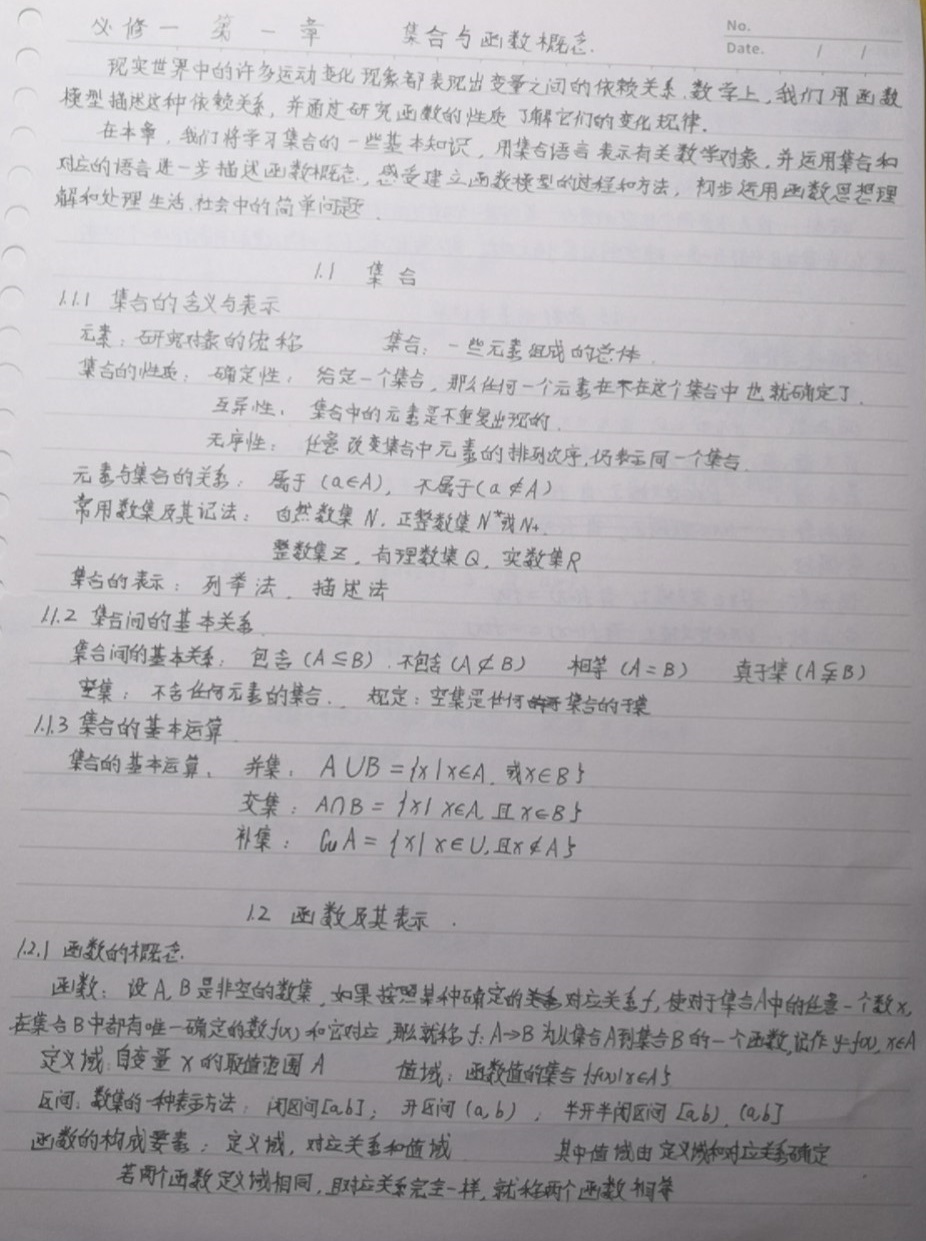 No.
Date. / /
必修一 第一章 集合与函数概念.
现实世界中的许多运动变化现象都表现出变量之间的依赖关系.数学上,我们用函数
模型描述这种依赖关系,并通过研究函数的性质了解它们的变化规律.
在本章,我们将学习集合的一些基本知识,用集合语言表示有关数学对象,并运用集合和
对应的语言进一步描述函数概念,感受建立函数模型的过程和方法,初步运用函数思想理
解和处理生活.社会中的简单问题.
1.1 集合
1.1.1 集合的含义与表示
元素:研究对象的统称 集合:一些元素组成的总体.
集合的性质:确定性:给定一个集合,那么任何一个元素在不在这个集合中也就确定了.
互异性:集合中的元素是不重复出现的.
无序性:任意改变集合中元素的排列次序,仍表示同一个集合.
元素与集合的关系:属于(a∈A),不属于(a∉A)
常用数集及其记法:自然数集N.正整数集N*或N+.
整数集Z,有理数集Q,实数集R
集合的表示:列举法.描述法
1.1.2 集合间的基本关系.
集合间的基本关系:包含(A⊆B).不包含(A⊄B) 相等(A=B) 真子集(A⫋B)
空集:不含任何元素的集合. 规定:空集是任何集合的子集
1.1.3 集合的基本运算.
集合的基本运算.并集:A∪B={x|x∈A.或x∈B}
交集:A∩B={x|x∈A.且x∈B}
补集:∁uA={x|x∈U,且x∉A}
1.2 函数及其表示.
1.2.1 函数的概念.
函数:设A,B是非空的数集,如果按照某种确定的对应关系f,使对于集合A中的任意一个数x,
在集合B中都有唯一确定的数f(x)和它对应,那么就称f:A→B为从集合A到集合B的一个函数,记作y=f(x),x∈A
定义域:自变量x的取值范围A 值域:函数值的集合{f(x)|x∈A}
区间:数集的一种表示方法:闭区间[a,b];开区间(a,b),半开半闭区间[a,b).(a,b]
函数的构成要素:定义域,对应关系和值域 其中值域由定义域和对应关系确定
若两个函数定义域相同,且对应关系完全一样,就称两个函数相等